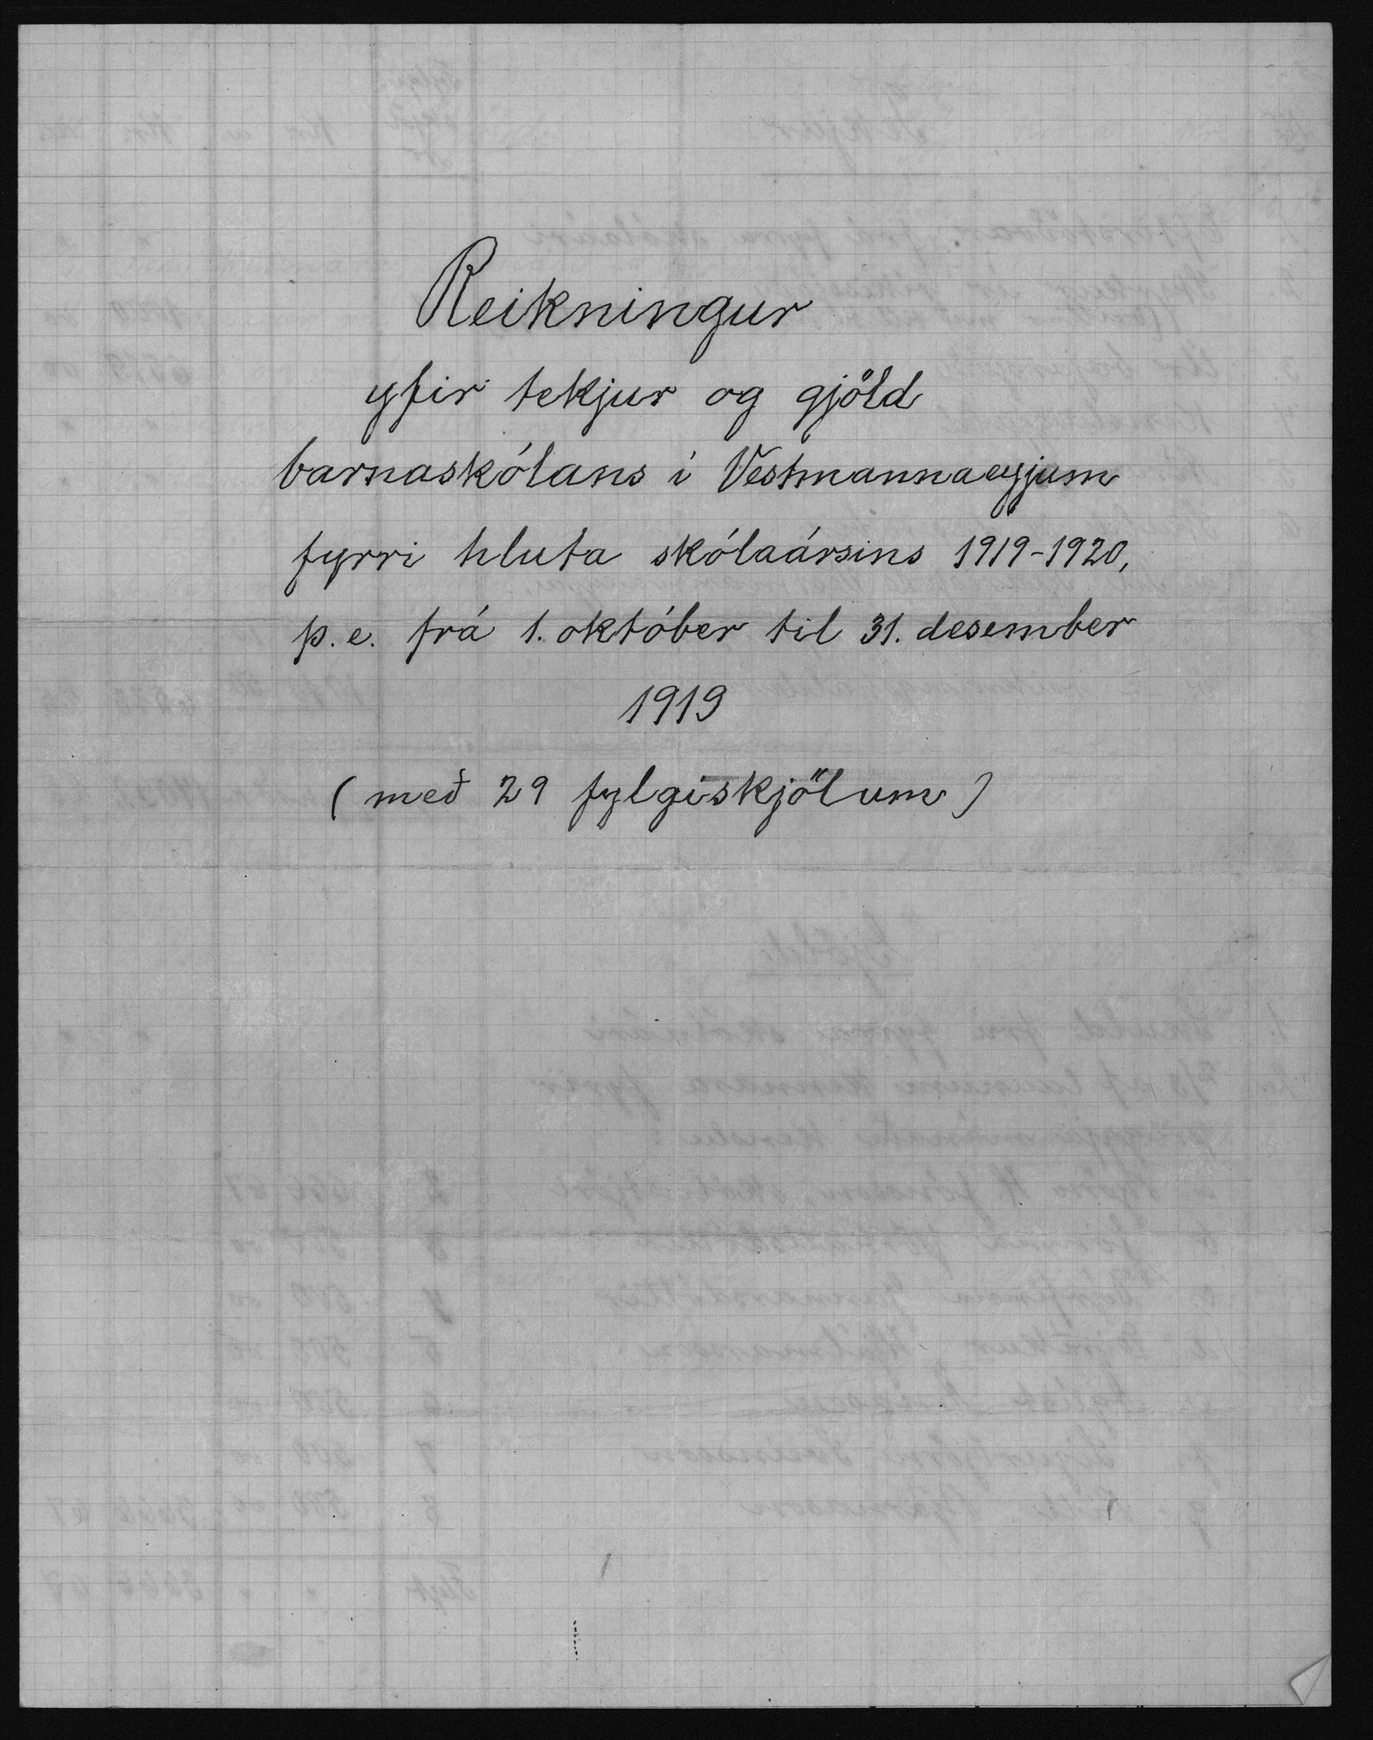 Reikningur
yfir tekjur og gjöld
barnaskólans í Vestmannaeyjum
fyrri hluta skólaársins 1919-1920,
þ.e. frá 1. október til 31. desember
1919
(með 29 fylgiskjölum)